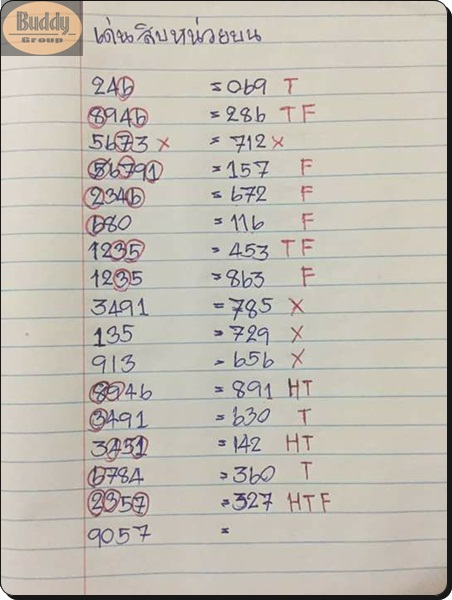 Buddy
Group
เด่นสิบหน่วยบน
246 = 069 T
8946 = 286 T F
5673 x = 712 x
56791 = 157 F
2346 = 672 F
680 = 116 F
1235 = 453 T F
1235 = 863 F
3491 = 785 X
135 = 729 X
913 = 656 X
8946 = 891 HT
3491 = 630 T
3451 = 142 HT
6784 = 360 T
2357 = 327 HTF
9057 =